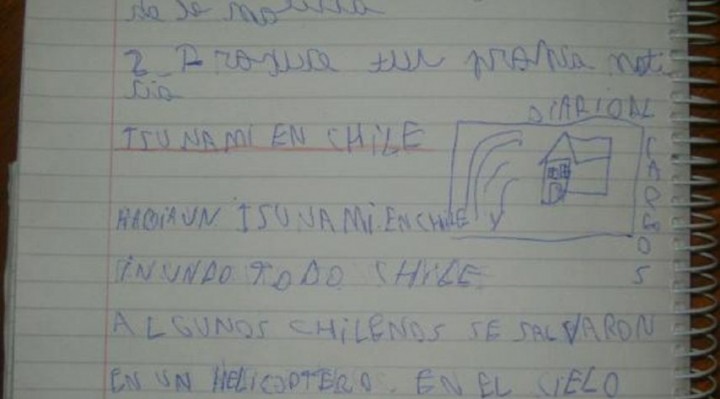 de la noticia
2_ Produce tu propia noti
cia
DIARION
CARGOS
TSUNAMI EN CHILE
HABIA UN TSUNAMI. EN CHILE
INUNDO TODO CHILE
ALGUNOS CHILENOS SE SALVARON
EN UN HELICOPTERO. EN EL CIELO